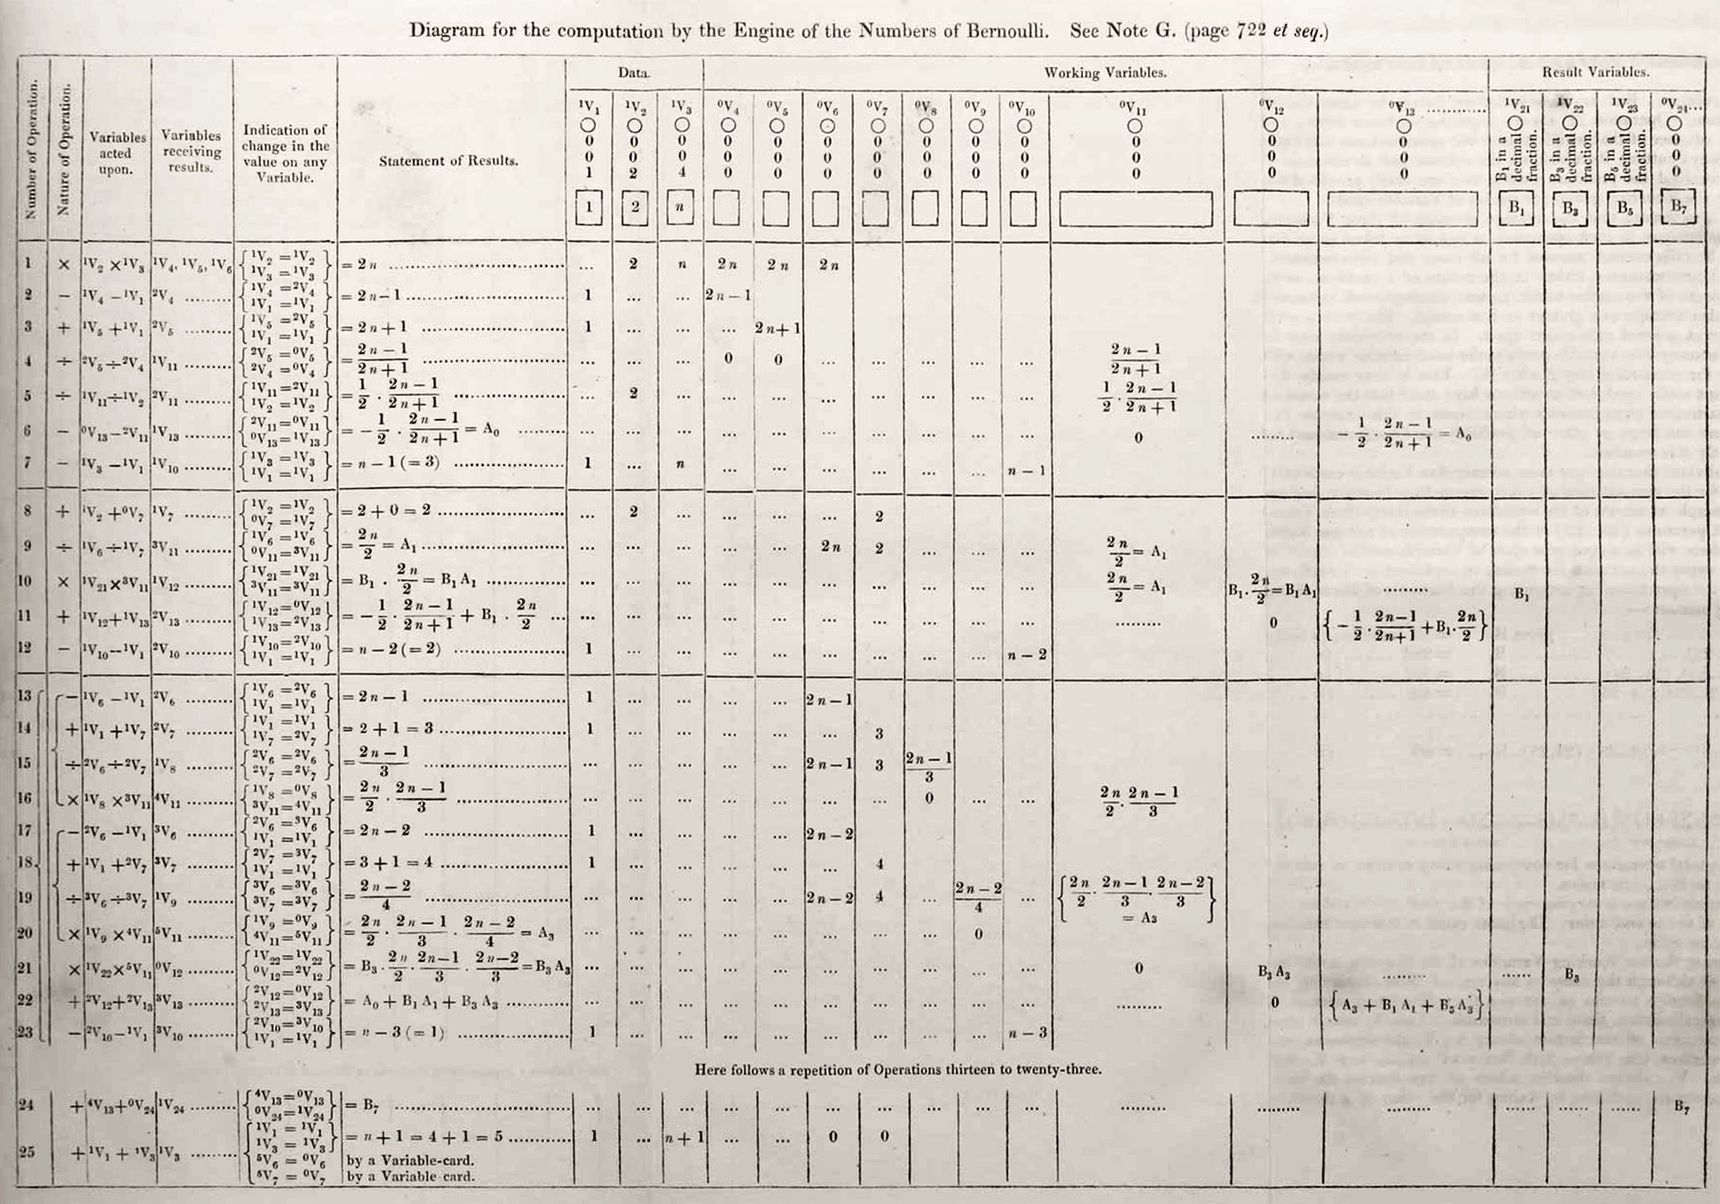 Diagram for the computation by the Engine of the Numbers of Bernoulli. See Note G. (page 722 et seq.)
Number of Operation. | Nature of Operation. | Variables acted upon. | Variables receiving results. | Indication of change in the value on any Variable. | Statement of Results. | Data. | Working Variables. | Result Variables.
¹V₁ ¹V₂ ¹V₃ ⁰V₄ ⁰V₅ ⁰V₆ ⁰V₇ ⁰V₈ ⁰V₉ ⁰V₁₀ ⁰V₁₁ ⁰V₁₂ ⁰V₁₃ ............ ¹V₂₁ ¹V₂₂ ¹V₂₃ ⁰V₂₄...
○ ○ ○ ○ ○ ○ ○ ○ ○ ○ ○ ○ ○ ○ ○ ○ ○
0 0 0 0 0 0 0 0 0 0 0 0 0 B₁ in a decimal fraction. B₃ in a decimal fraction. B₅ in a decimal fraction. 0
0 0 0 0 0 0 0 0 0 0 0 0 0 0
1 2 4 0 0 0 0 0 0 0 0 0 0 0
1 2 n B₁ B₃ B₅ B₇
1 × ¹V₂ × ¹V₃ ¹V₄, ¹V₅, ¹V₆ { ¹V₂ = ¹V₂ ¹V₃ = ¹V₃ } = 2n ... 2 n 2n 2n 2n
2 − ¹V₄ − ¹V₁ ²V₄ ......... { ¹V₄ = ²V₄ ¹V₁ = ¹V₁ } = 2n − 1 1 ... ... 2n − 1
3 + ¹V₅ + ¹V₁ ²V₅ ......... { ¹V₅ = ²V₅ ¹V₁ = ¹V₁ } = 2n + 1 1 ... ... ... 2n + 1
4 ÷ ²V₅ ÷ ²V₄ ¹V₁₁ ......... { ²V₅ = ⁰V₅ ²V₄ = ⁰V₄ } = (2n − 1)/(2n + 1) ... ... ... 0 0 ... ... ... ... ... (2n − 1)/(2n + 1)
5 ÷ ¹V₁₁ ÷ ¹V₂ ²V₁₁ ......... { ¹V₁₁ = ²V₁₁ ¹V₂ = ¹V₂ } = 1/2 . (2n − 1)/(2n + 1) ... 2 ... ... ... ... ... ... ... ... 1/2 . (2n − 1)/(2n + 1)
6 − ⁰V₁₃ − ²V₁₁ ¹V₁₃ ......... { ²V₁₁ = ⁰V₁₁ ⁰V₁₃ = ¹V₁₃ } = − 1/2 . (2n − 1)/(2n + 1) = A₀ ... ... ... ... ... ... ... ... ... ... 0 ......... − 1/2 . (2n − 1)/(2n + 1) = A₀
7 − ¹V₃ − ¹V₁ ¹V₁₀ ......... { ¹V₃ = ¹V₃ ¹V₁ = ¹V₁ } = n − 1 (= 3) 1 ... n ... ... ... ... ... ... n − 1
8 + ¹V₂ + ⁰V₇ ¹V₇ ......... { ¹V₂ = ¹V₂ ⁰V₇ = ¹V₇ } = 2 + 0 = 2 ... 2 ... ... ... ... 2
9 ÷ ¹V₆ ÷ ¹V₇ ³V₁₁ ......... { ¹V₆ = ¹V₆ ⁰V₁₁ = ³V₁₁ } = 2n/2 = A₁ ... ... ... ... ... 2n 2 ... ... ... 2n/2 = A₁
10 × ¹V₂₁ × ³V₁₁ ¹V₁₂ ......... { ¹V₂₁ = ¹V₂₁ ³V₁₁ = ³V₁₁ } = B₁ . 2n/2 = B₁ A₁ ... ... ... ... ... ... ... ... ... ... 2n/2 = A₁ B₁ . 2n/2 = B₁ A₁ ......... B₁
11 + ¹V₁₂ + ¹V₁₃ ²V₁₃ ......... { ¹V₁₂ = ⁰V₁₂ ¹V₁₃ = ²V₁₃ } = − 1/2 . (2n − 1)/(2n + 1) + B₁ . 2n/2 ... ... ... ... ... ... ... ... ... ... ... ......... 0 { − 1/2 . (2n − 1)/(2n + 1) + B₁ . 2n/2 }
12 − ¹V₁₀ − ¹V₁ ²V₁₀ ......... { ¹V₁₀ = ²V₁₀ ¹V₁ = ¹V₁ } = n − 2 (= 2) 1 ... ... ... ... ... ... ... ... n − 2
13 − ¹V₆ − ¹V₁ ²V₆ ......... { ¹V₆ = ²V₆ ¹V₁ = ¹V₁ } = 2n − 1 1 ... ... ... ... 2n − 1
14 + ¹V₁ + ¹V₇ ²V₇ ......... { ¹V₁ = ¹V₁ ¹V₇ = ²V₇ } = 2 + 1 = 3 1 ... ... ... ... ... 3
15 ÷ ²V₆ ÷ ²V₇ ¹V₈ ......... { ²V₆ = ²V₆ ²V₇ = ²V₇ } = (2n − 1)/3 ... ... ... ... ... 2n − 1 3 (2n − 1)/3
16 × ¹V₈ × ³V₁₁ ⁴V₁₁ ......... { ¹V₈ = ⁰V₈ ³V₁₁ = ⁴V₁₁ } = 2n/2 . (2n − 1)/3 ... ... ... ... ... ... ... 0 ... ... 2n/2 . (2n − 1)/3
17 − ²V₆ − ¹V₁ ³V₆ ......... { ²V₆ = ³V₆ ¹V₁ = ¹V₁ } = 2n − 2 1 ... ... ... ... 2n − 2
18 + ¹V₁ + ²V₇ ³V₇ ......... { ²V₇ = ³V₇ ¹V₁ = ¹V₁ } = 3 + 1 = 4 1 ... ... ... ... ... 4
19 ÷ ³V₆ ÷ ³V₇ ¹V₉ ......... { ³V₆ = ³V₆ ³V₇ = ³V₇ } = (2n − 2)/4 ... ... ... ... ... 2n − 2 4 ... (2n − 2)/4 ... { 2n/2 . (2n − 1)/3 . (2n − 2)/3 = A₃ }
20 × ¹V₉ × ⁴V₁₁ ⁵V₁₁ ......... { ¹V₉ = ⁰V₉ ⁴V₁₁ = ⁵V₁₁ } = 2n/2 . (2n − 1)/3 . (2n − 2)/4 = A₃ ... ... ... ... ... ... ... ... 0
21 × ¹V₂₂ × ⁵V₁₁ ⁰V₁₂ ......... { ¹V₂₂ = ¹V₂₂ ⁰V₁₂ = ²V₁₂ } = B₃ . 2n/2 . (2n − 1)/3 . (2n − 2)/3 = B₃ A₃ ... ... ... ... ... ... ... ... ... ... 0 B₃ A₃ ......... ...... B₃
22 + ²V₁₂ + ²V₁₃ ³V₁₃ ......... { ²V₁₂ = ⁰V₁₂ ²V₁₃ = ³V₁₃ } = A₀ + B₁ A₁ + B₃ A₃ ... ... ... ... ... ... ... ... ... ... ......... 0 { A₃ + B₁ A₁ + B₃ A₃ }
23 − ²V₁₀ − ¹V₁ ³V₁₀ ......... { ²V₁₀ = ³V₁₀ ¹V₁ = ¹V₁ } = n − 3 (= 1) 1 ... ... ... ... ... ... ... ... n − 3
Here follows a repetition of Operations thirteen to twenty-three.
24 + ⁴V₁₃ + ⁰V₂₄ ¹V₂₄ ......... { ⁴V₁₃ = ⁰V₁₃ ⁰V₂₄ = ¹V₂₄ } = B₇ ... ... ... ... ... ... ... ... ... ... ......... ......... ......... ...... ...... ...... B₇
25 + ¹V₁ + ¹V₃ ¹V₃ ......... { ¹V₁ = ¹V₁ ¹V₃ = ¹V₃ ⁵V₆ = ⁰V₆ ⁵V₇ = ⁰V₇ } = n + 1 = 4 + 1 = 5 1 ... n + 1 ... ... 0 0
by a Variable-card.
by a Variable card.